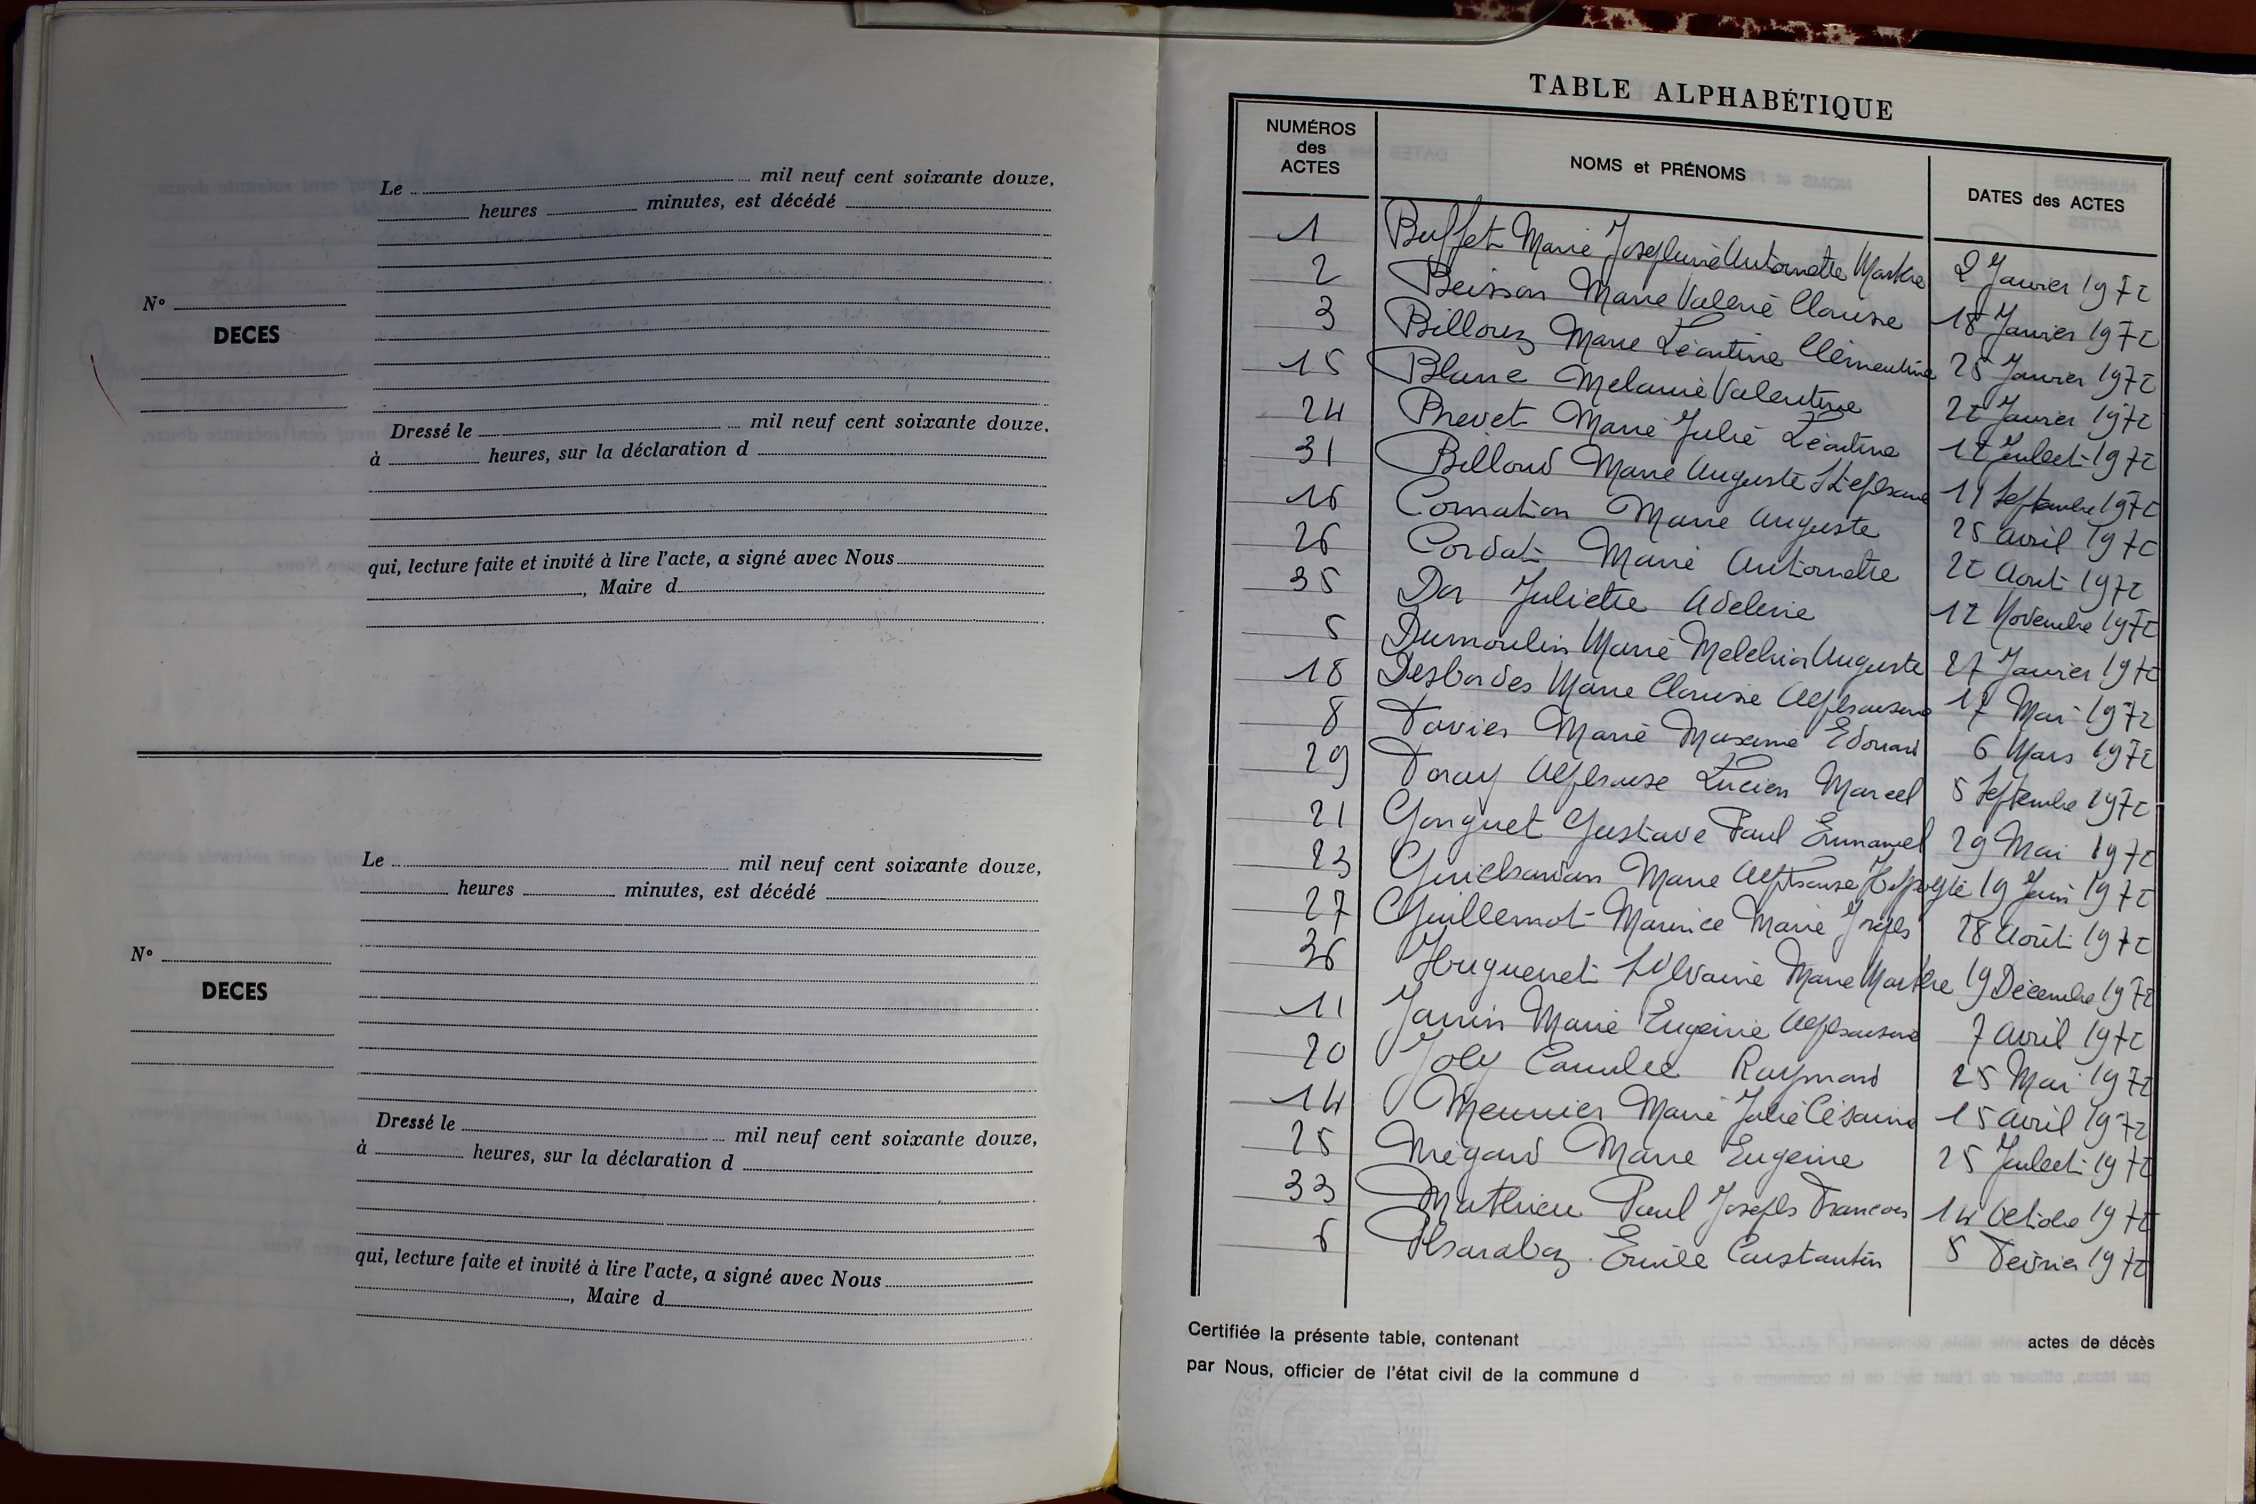 Le mil neuf cent soixante douze,
heures minutes, est décédé
N°
DECES
Dressé le mil neuf cent soixante douze,
à heures, sur la déclaration d
qui, lecture faite et invité à lire l'acte, a signé avec Nous
, Maire d
Le mil neuf cent soixante douze,
heures minutes, est décédé
N°
DECES
Dressé le mil neuf cent soixante douze,
à heures, sur la déclaration d
qui, lecture faite et invité à lire l'acte, a signé avec Nous
, Maire d
TABLE ALPHABÉTIQUE
NUMÉROS des ACTES NOMS et PRÉNOMS DATES des ACTES
1 Buffet Marie Josephine Antoinette Marthe 2 Janvier 1972
2 Marie Valerie Clarisse 18 Janvier 1972
3 Marie Léontine Clémentine 25 Janvier 1972
15 Melanie Valentine 22 Janvier 1972
24 Prevet Marie Julie Léontine 12 Juillet 1972
31 Billoud Marie Auguste Stephanie 11 Septembre 1972
16 Cornation Marie Auguste 25 avril 1972
26 Cordat Marie Antoinette 22 Aout 1972
35 Dor Juliette Adeline 12 Novembre 1972
5 Dumoulin Marie Melchior Auguste 27 Janvier 1972
18 Desbordes Marie Clarisse Alphonsine 17 Mai 1972
8 Favier Marie Maxime Edouard 6 Mars 1972
29 Foray Alphonse Lucien Marcel 5 Septembre 1972
21 Gonguet Gustave Paul Emmanuel 29 Mai 1972
23 Guichardan Marie Alphonse Hippolyte 19 Juin 1972
27 Guillermot Maurice Marie Joseph 28 Août 1972
36 Huguenet Sylvaine Marie Marthe 19 Décembre 1972
11 Janin Marie Eugenie Alphonsine 7 avril 1972
20 Joly Camille Raymond 25 Mai 1972
14 Meunier Marie Julie Césarine 15 avril 1972
25 Mégard Marie Eugenie 25 Juillet 1972
33 Mathieu Paul Joseph Francois 14 Octobre 1972
6 Pharaboz Emile Constantin 5 Fevrier 1972
Certifiée la présente table, contenant actes de décès
par Nous, officier de l'état civil de la commune d